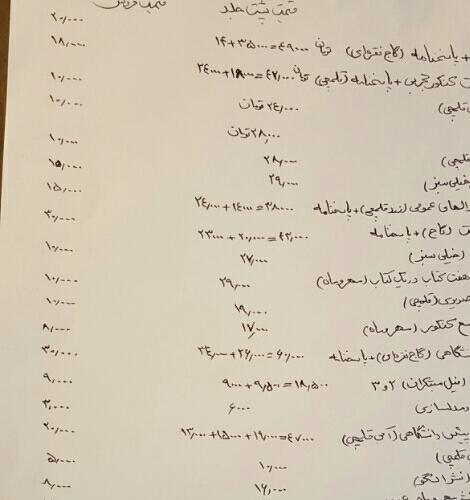 قیمت پشت جلد قیمت فروش
۲۰,۰۰۰
+ پاسخنامه (گاج نقره‌ای) ۱۴+۳۵۰۰۰=۴۹۰۰۰ تومان ۱۸,۰۰۰
کنکور تجربی + پاسخنامه (قلمچی) ۲۴۰۰۰+۱۸۰۰۰=۴۲,۰۰۰ تومان ۱۰,۰۰۰
(قلمچی) ۲۴,۰۰۰ تومان ۱۰,۰۰۰
۲۸,۰۰۰ تومان ۱۰,۰۰۰
(قلمچی) ۲۸,۰۰۰ ۱۵,۰۰۰
(خیلی سبز) ۲۹,۰۰۰ ۱۵,۰۰۰
عمومی (زرد قلمچی) + پاسخنامه ۲۴,۰۰۰+۱۴۰۰۰=۳۸۰۰۰ ۳۰,۰۰۰
(گاج) + پاسخنامه ۲۳۰۰۰+۲۰,۰۰۰=۴۳,۰۰۰
(خیلی سبز) ۲۷,۰۰۰ ۱۰,۰۰۰
هفت کتاب در یک کتاب (مهر و ماه) ۲۹,۰۰۰ ۱۰,۰۰۰
(قلمچی) ۱۹,۰۰۰ ۱۰,۰۰۰
کنکور (مهر و ماه) ۱۷,۰۰۰ ۸,۰۰۰
(گاج نقره‌ای) + پاسخنامه ۳۴,۰۰۰+۲۶,۰۰۰=۶۰,۰۰۰ ۳۰,۰۰۰
(مبتکران) ۲ و ۳ ۹۰۰۰+۹,۵۰۰=۱۸,۵۰۰ ۹,۰۰۰
۶۰۰۰ ۳,۰۰۰
پیش دانشگاهی (آبی قلمچی) ۱۳,۰۰۰+۱۵۰۰۰+۱۹,۰۰۰=۴۷۰۰۰ ۲۰,۰۰۰
(قلمچی) ۱۰,۰۰۰ ۵,۰۰۰
۱۶,۰۰۰ ۸,۰۰۰